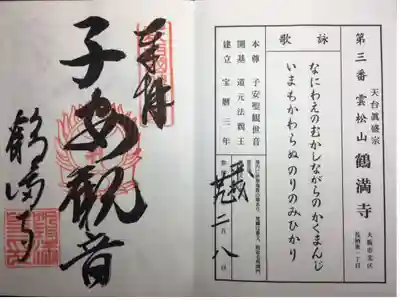 第三番 天台眞盛宗 雲松山 鶴満寺
大阪市北区
長柄東一丁目
詠歌
なにわえのむかしながらのかくまんじ
いまもかわらぬのりのみひかり
本尊 子安聖観世音
開基 道元法親王
建立 宝暦三年
二月八日
奉拝
子安観音
鶴満寺